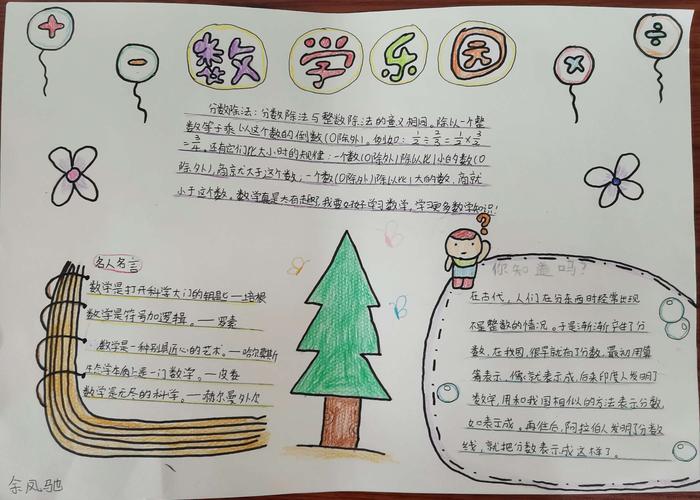 数学乐园
分数除法：分数除法与整数除法的意义相同。除以一个整
数等于乘以这个数的倒数(0除外)。例如：1/2÷2/3=1/2×3/2
=3/4。还有它们比大小时的规律：一个数(0除外)除以比1小的数(0
除外)，商就大于这个数，一个数(0除外)除以比1大的数，商就
小于这个数。数学真是太有趣了，我要好好学习数学，学习更多数学知识！
名人名言
数学是打开科学大门的钥匙——培根
数学是符号加逻辑。——罗素
数学是一种别具匠心的艺术。——哈尔莫斯
上是一门数学。——皮娄
数学是无尽的科学。——赫尔曼外尔
?
你知道吗?
在古代，人们在分东西时经常出现
不是整数的情况。于是渐渐产生了分
数，在我国，很早就有了分数，最初用算
筹表示，像：就表示成，后来印度人发明了
数学，用和我国相似的方法表示分数，
如表示成。再往后，阿拉伯人发明了分数
线，就把分数表示成这样了。
余凤驰